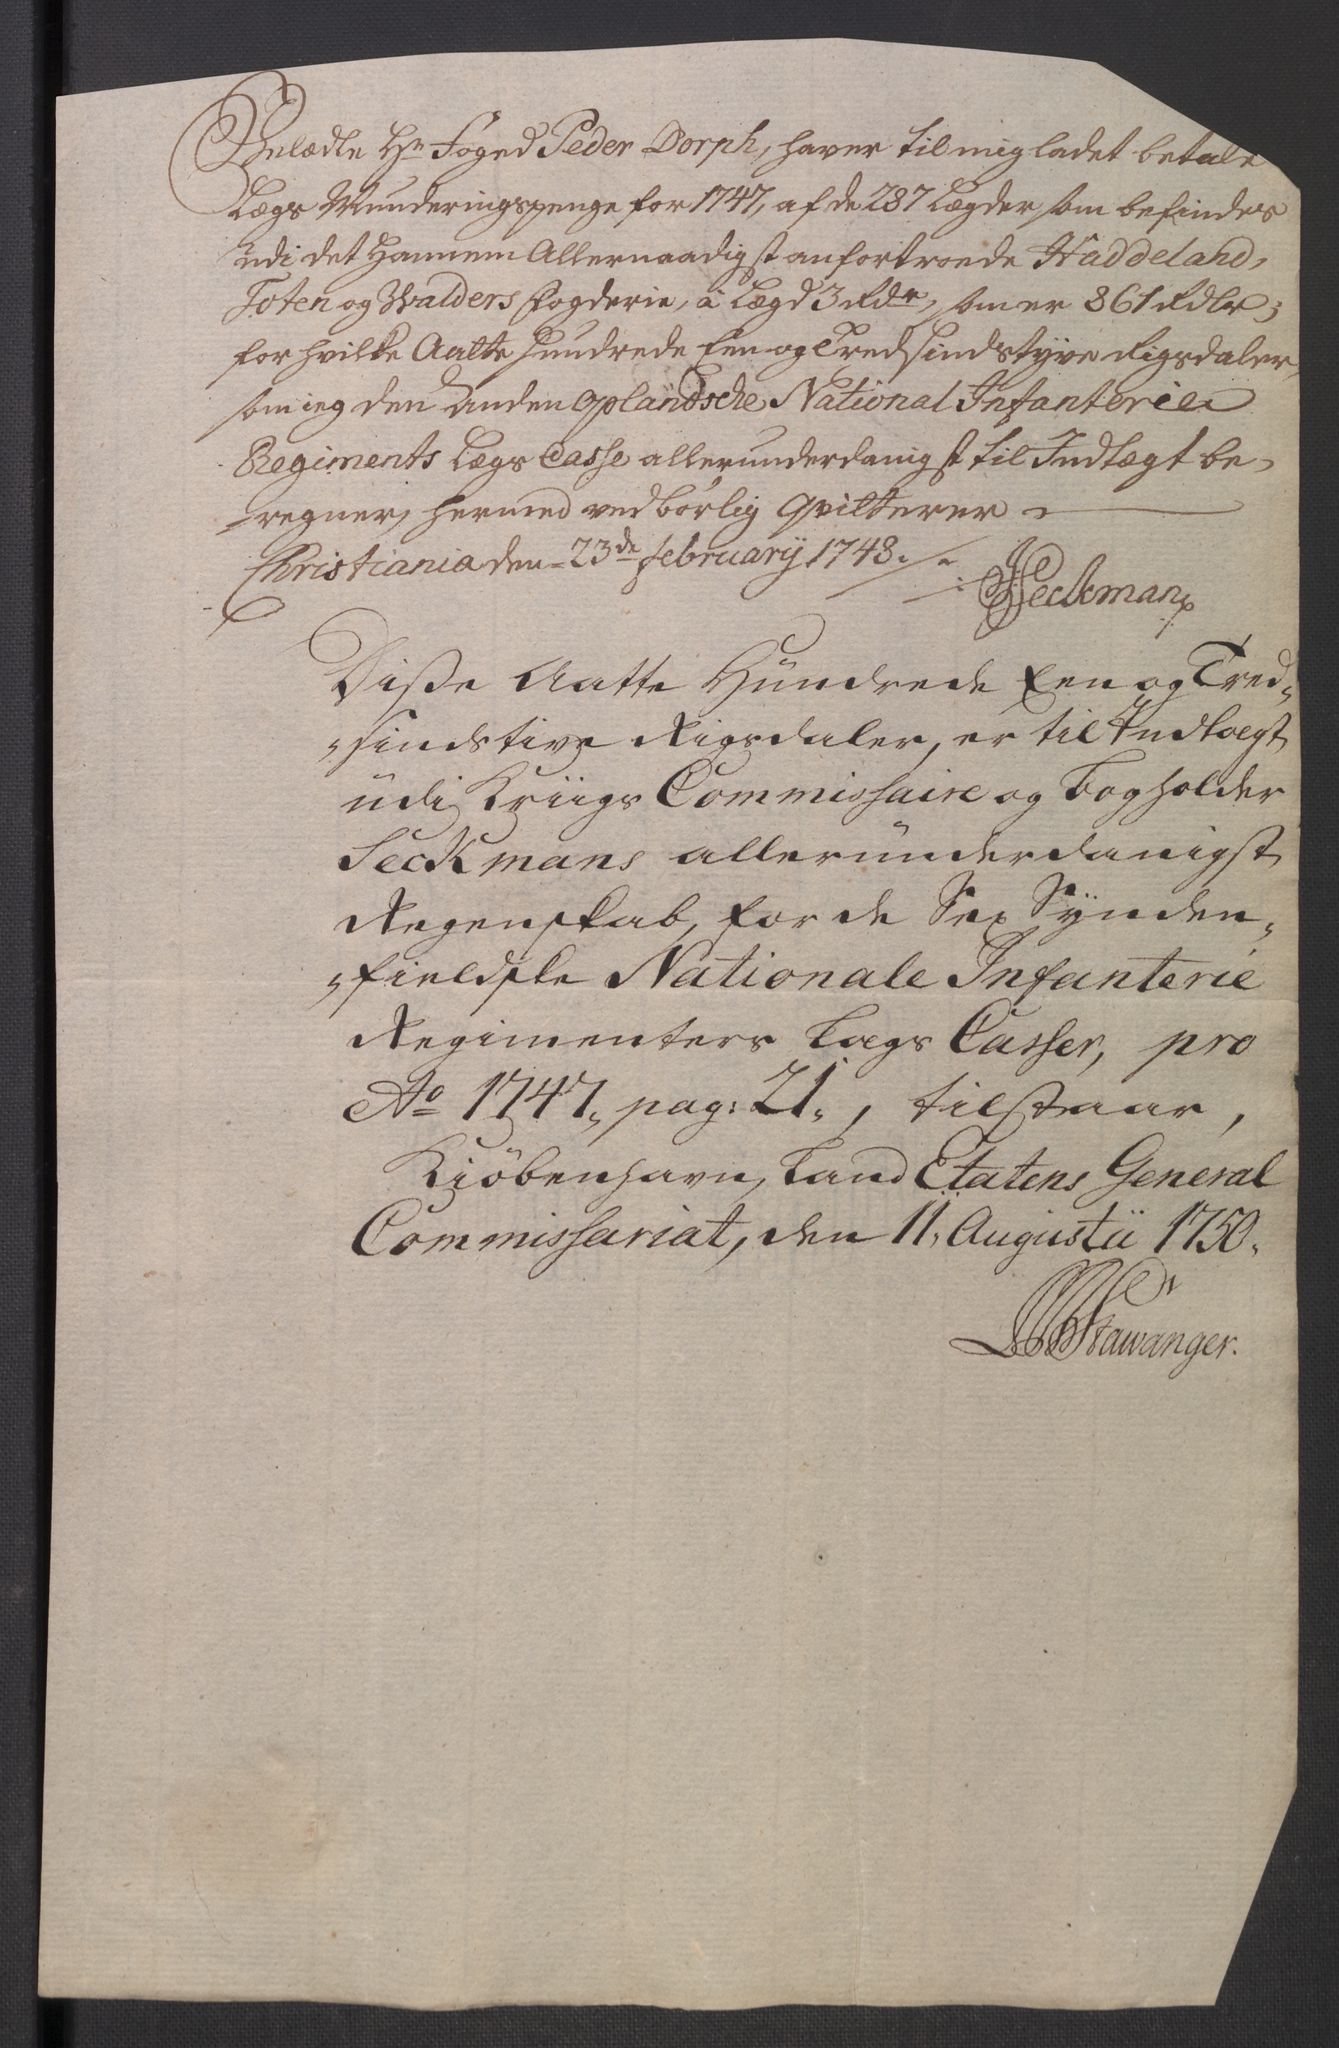 Velædle Hr Foged Peder Dorph, haver til mig ladet betale
Lægs Munderingspenge for 1747, af de 287 Lægder som befindes
udi det hannem Allernaadigst anfortroede Haddeland,
Toten og Walders Fogderie, à Lægd 3 Rdr, som er 861 Rdlr;
for hvilke Aatte Hundrede Een og Tredsindstyve Rigsdaler,
som ieg den Anden Oplandsche National Infanterie
Regiments Lægs Casse allerunderdanigst til Indtægt be-
regner, hermed ved børlig qvitterer
Christiania den 23de February 1748.
Seckman
Diße Aatte Hundrede Een og Tred-
sindstive Rigsdaler, er til Indtægt
udi Kriigs Commissaire og Bogholder
Seckmans allerunderdanigst
Regenskab, for de Sex Synden-
fieldske Nationale Infanterie
Regimenters Lægs Casser, pro
Ao 1747, pag: 21, tilstaar,
Kiöbenhavn, Land Etatens General
Commissariat, den 11. Augustii 1750.
Stawanger.